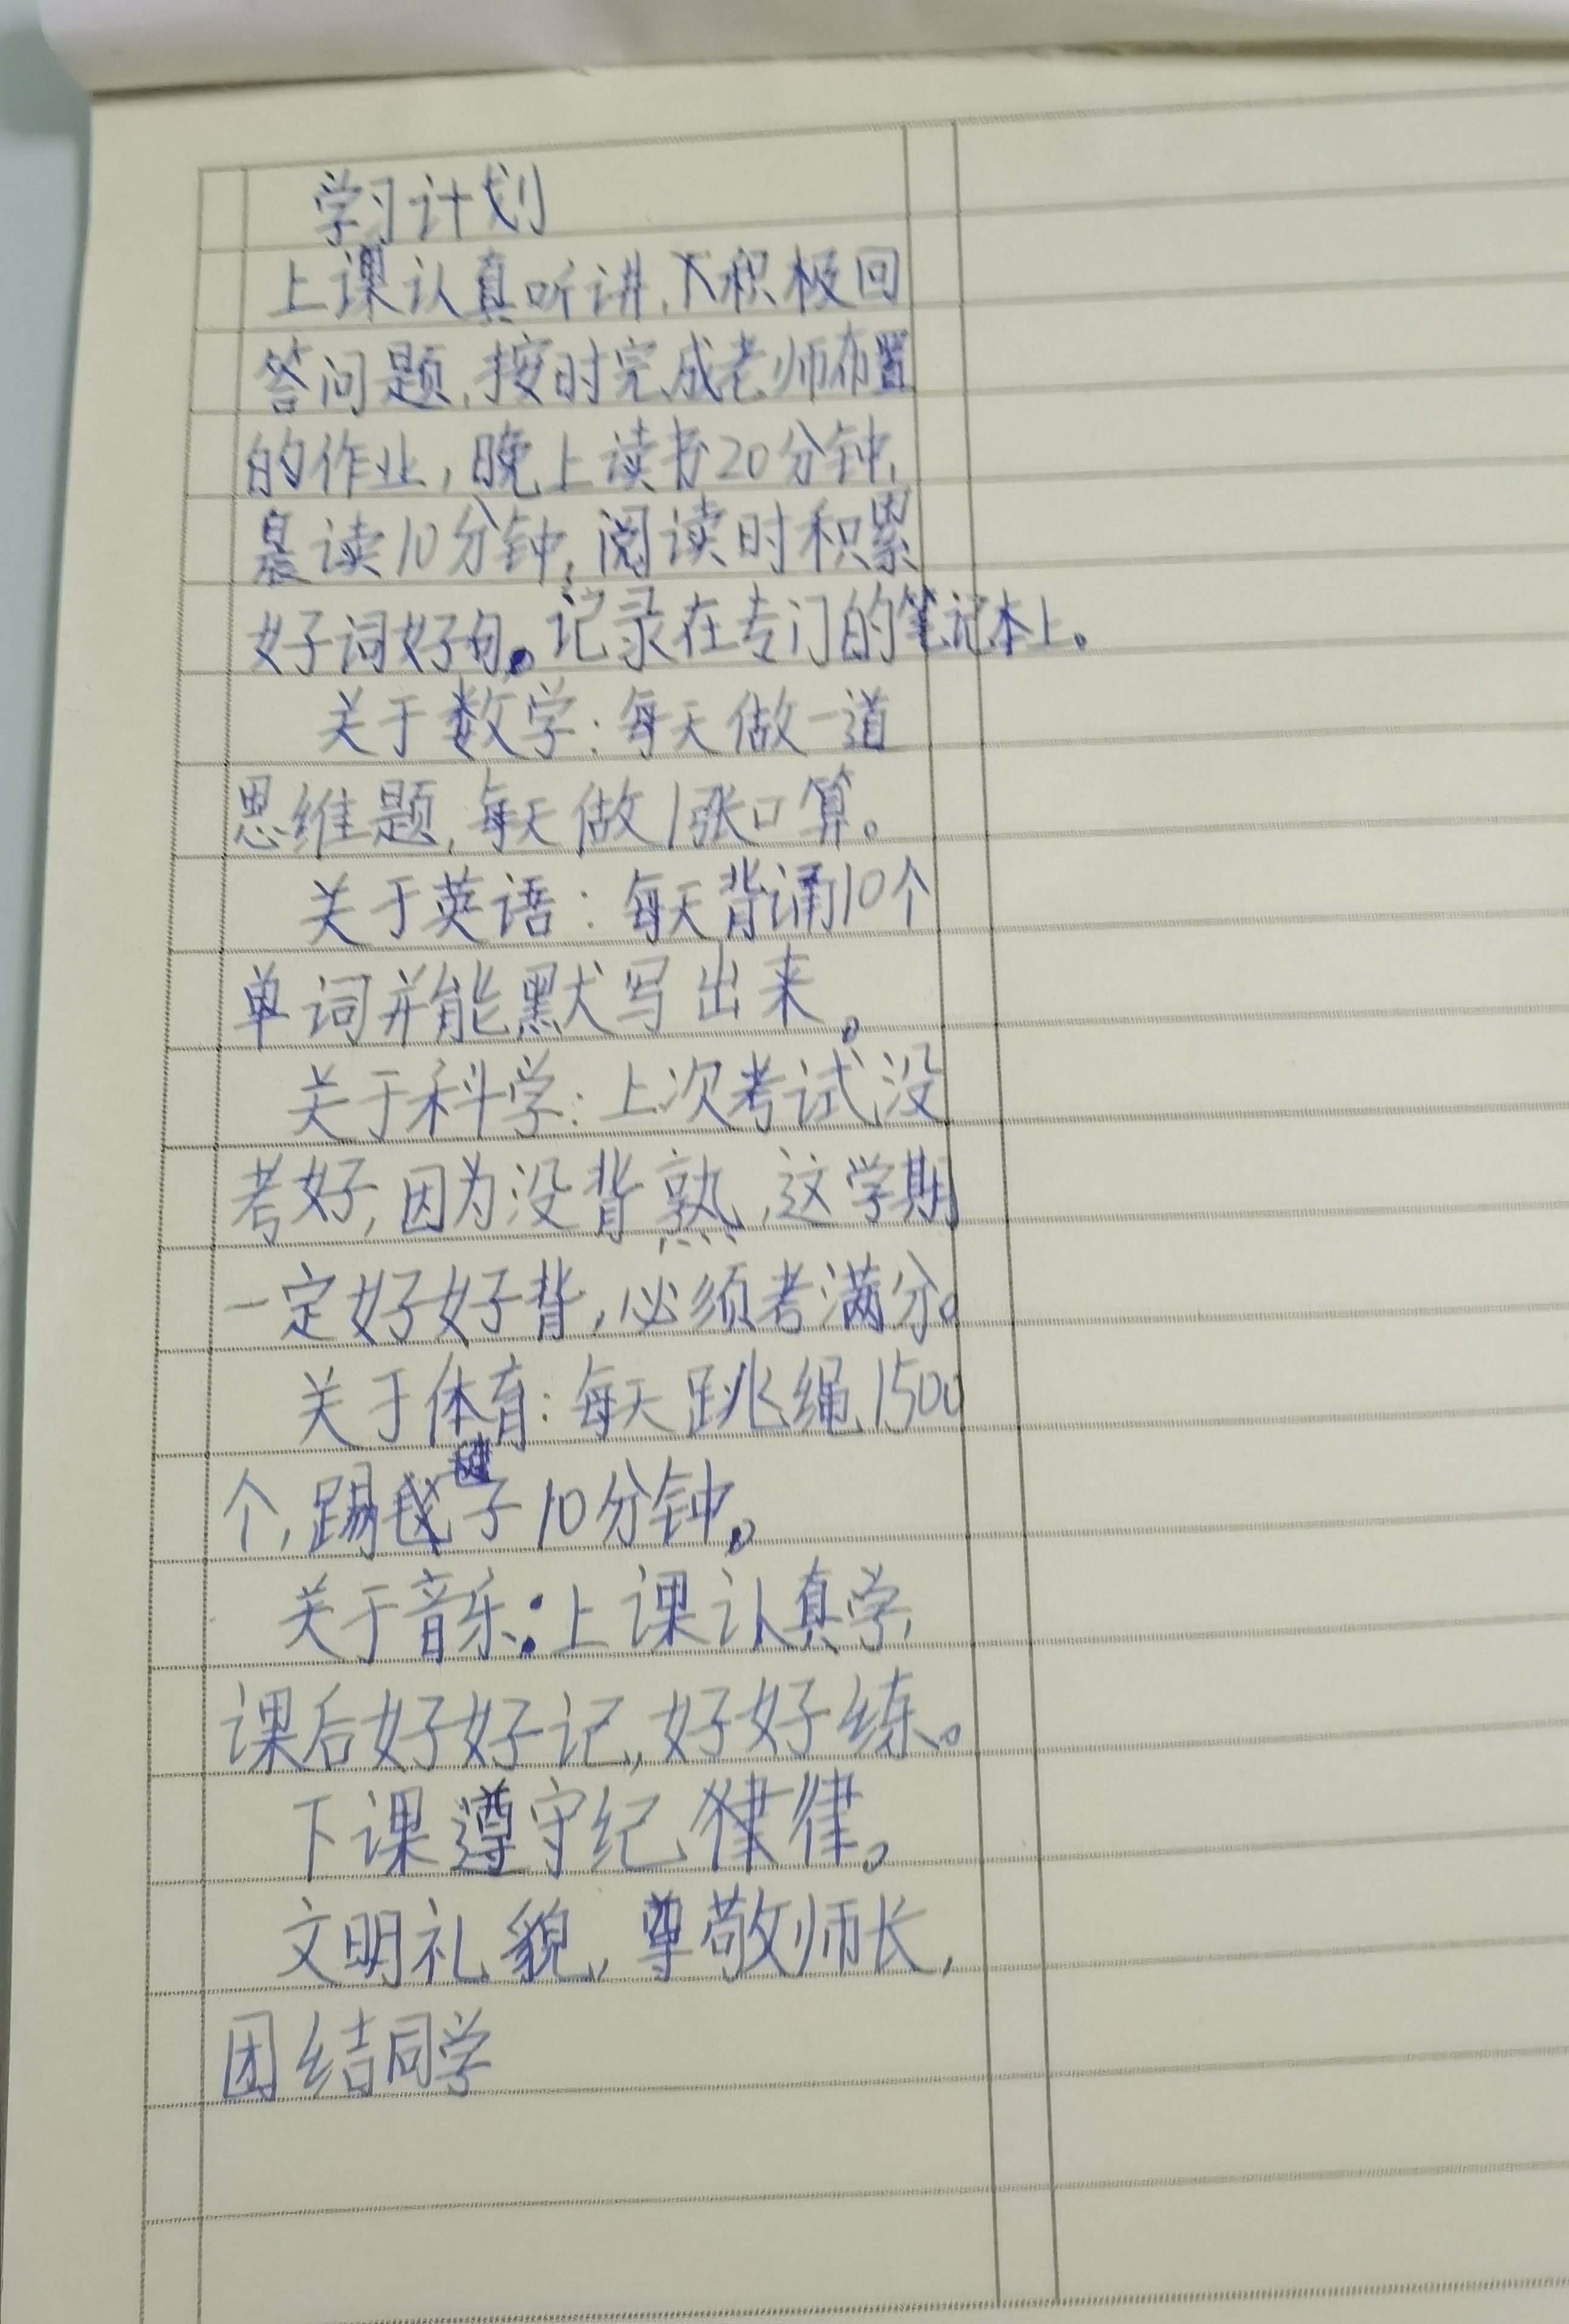 学习计划
上课认真听讲,积极回
答问题,按时完成老师布置
的作业,晚上读书20分钟,
晨读10分钟,阅读时积累
好词好句。记录在专门的笔记本上。
关于数学:每天做一道
思维题,每天做1张口算。
关于英语:每天背诵10个
单词并能默写出来。
关于科学:上次考试没
考好,因为没背熟,这学期
一定好好背,必须考满分。
关于体育:每天跳绳1500
个,踢毽子10分钟。
关于音乐:上课认真学,
课后好好记,好好练。
下课遵守纪律。
文明礼貌,尊敬师长,
团结同学